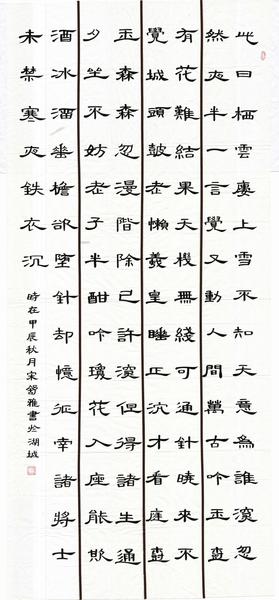 此日栖雲廔上雪不知天意為誰深忽
然夜半一言覺又動人間萬古吟玉樹
有花難結果天機無綫可通針曉來不
覺城頭皷老懶羲皇睡正沉才看庭樹
玉森森忽漫階除已許深但得諸生通
夕坐不妨老子半酣吟瓊花入座能欺
酒冰溜垂檐欲墮針却憶征南諸將士
未禁寒夜鉄衣沉
時在甲辰秋月宋舒雅書於湖城